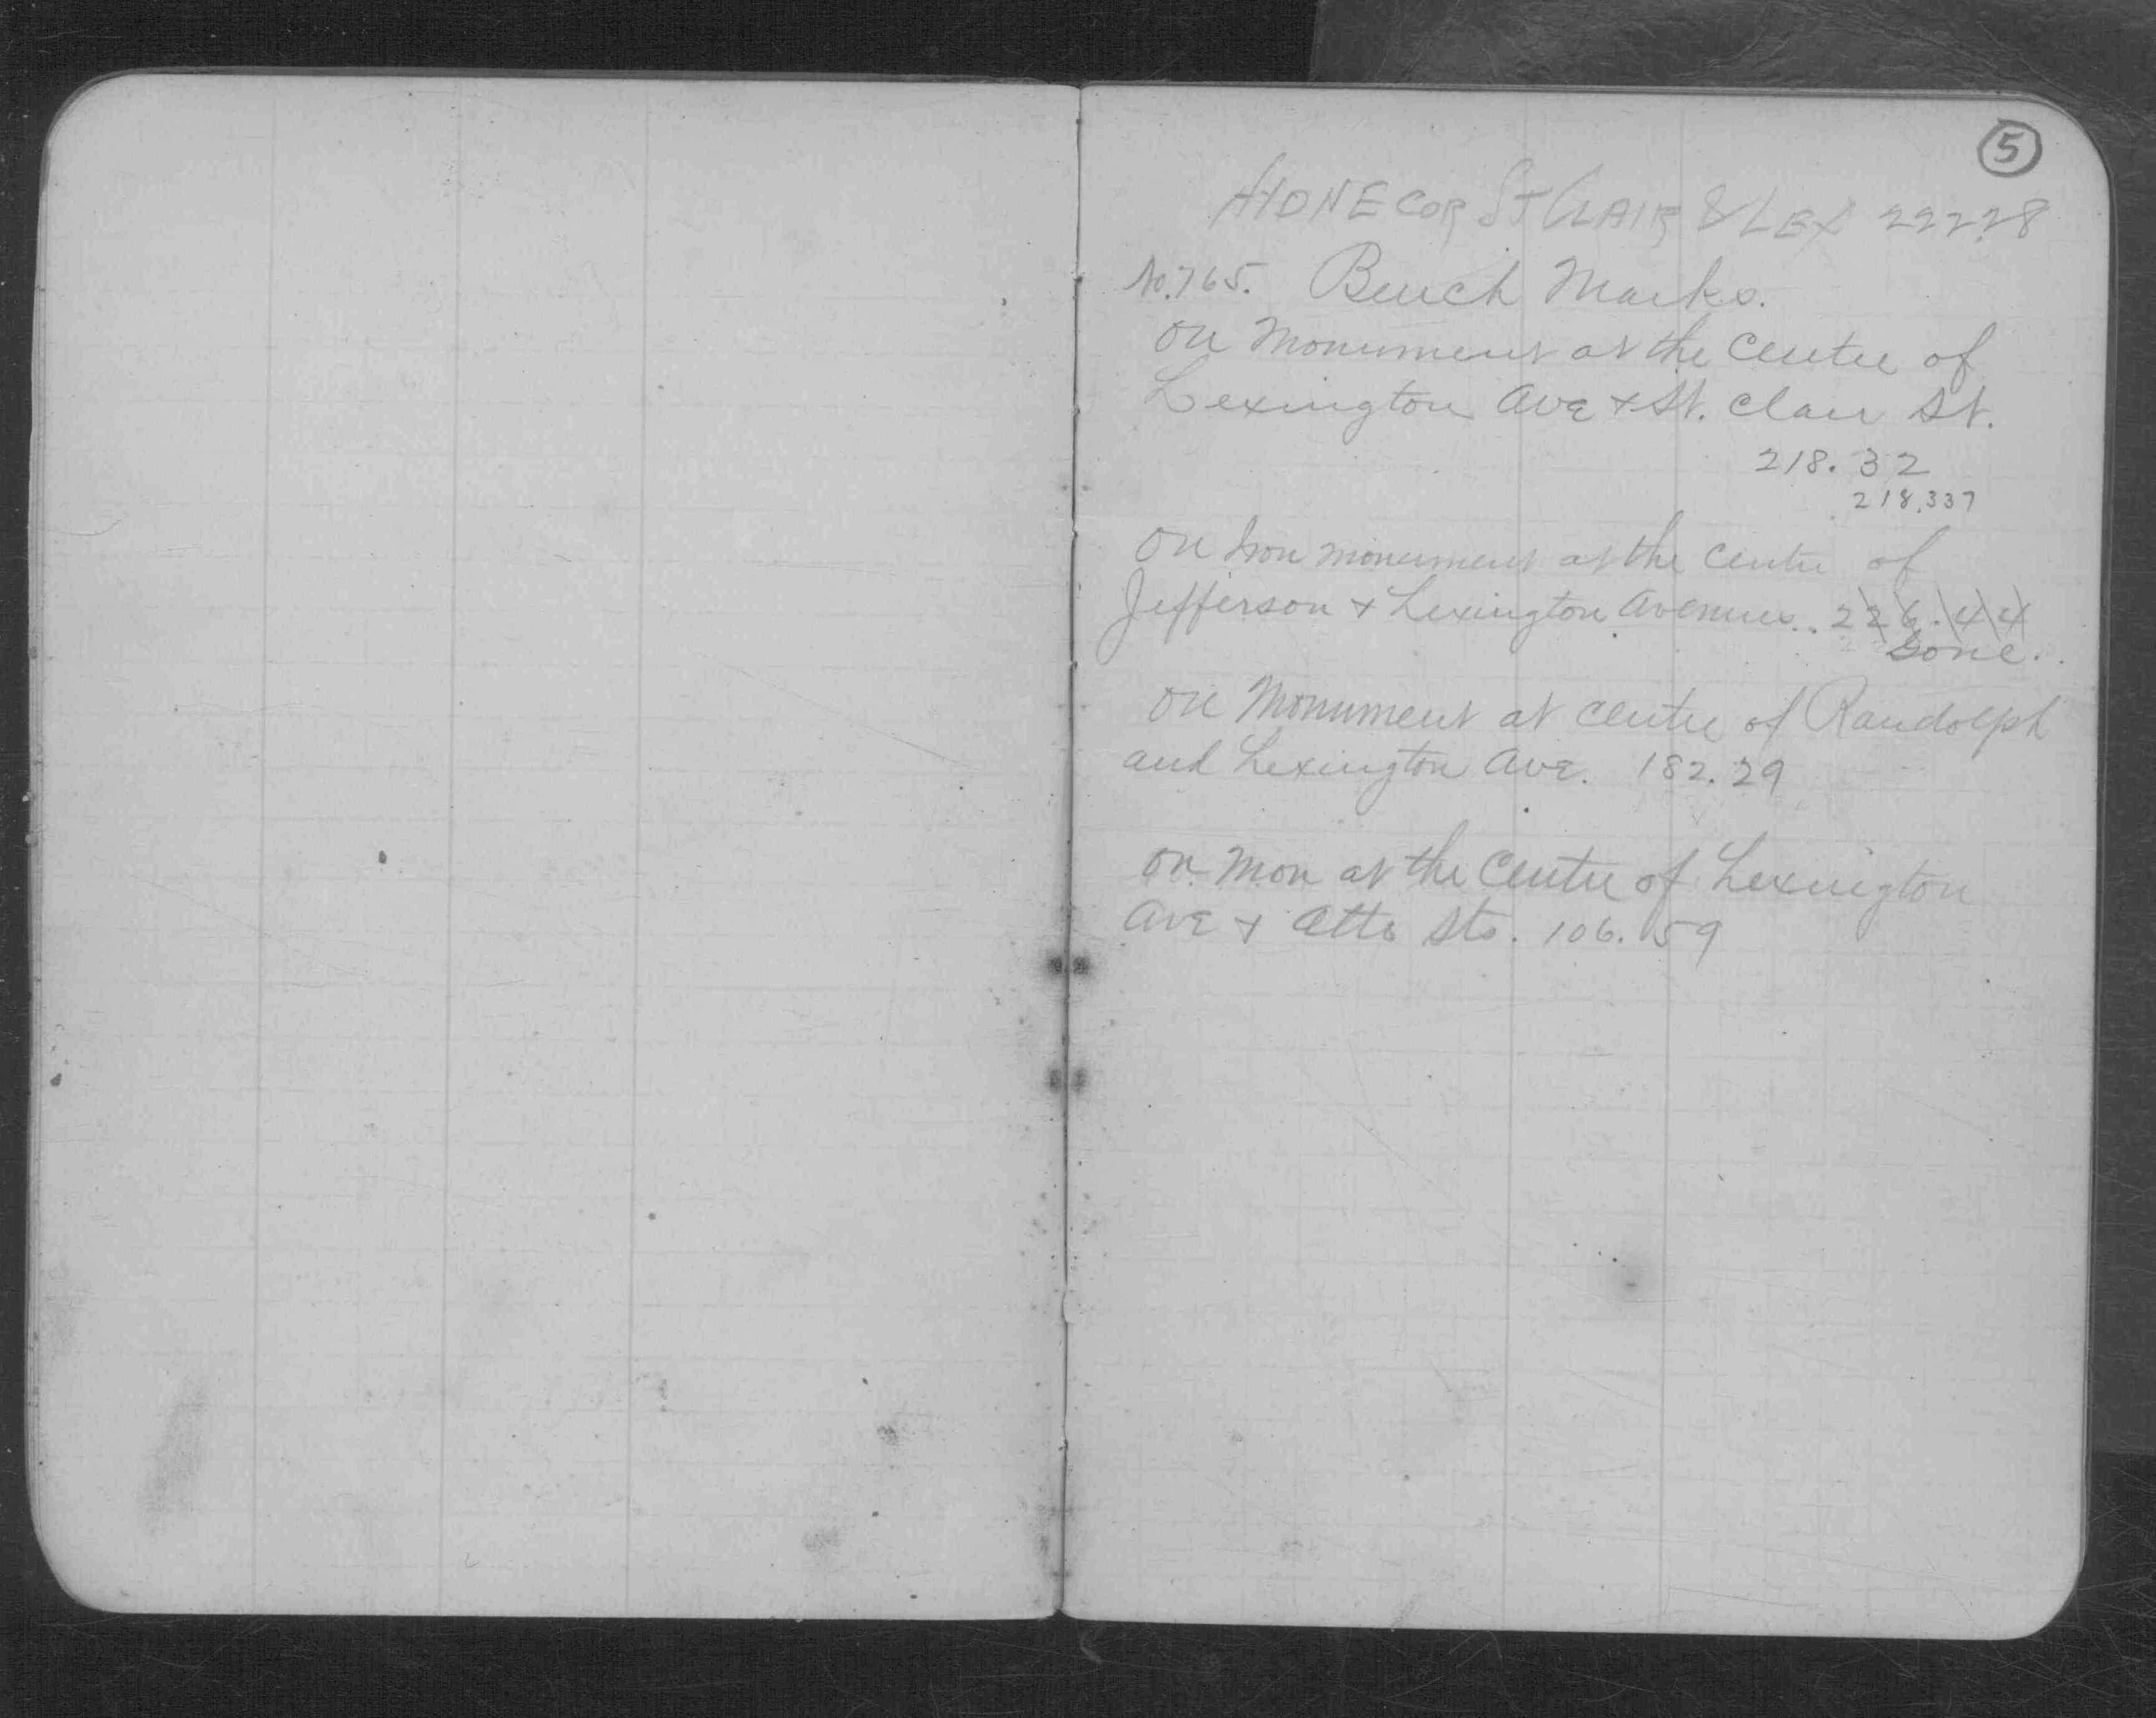 5
HD NE COR ST CLAIR & LEX 222.28
No. 765. Bench Marks.
On Monument at the Centre of
Lexington Ave + St. Clair St.
218.32
218.337
On Iron monument at the Centre of
Jefferson + Lexington Avenues. 226.44
Gone.
On Monument at centre of Randolph
and Lexington Ave. 182.29
On Mon at the Centre of Lexington
Ave + Otto Sts. 106.59